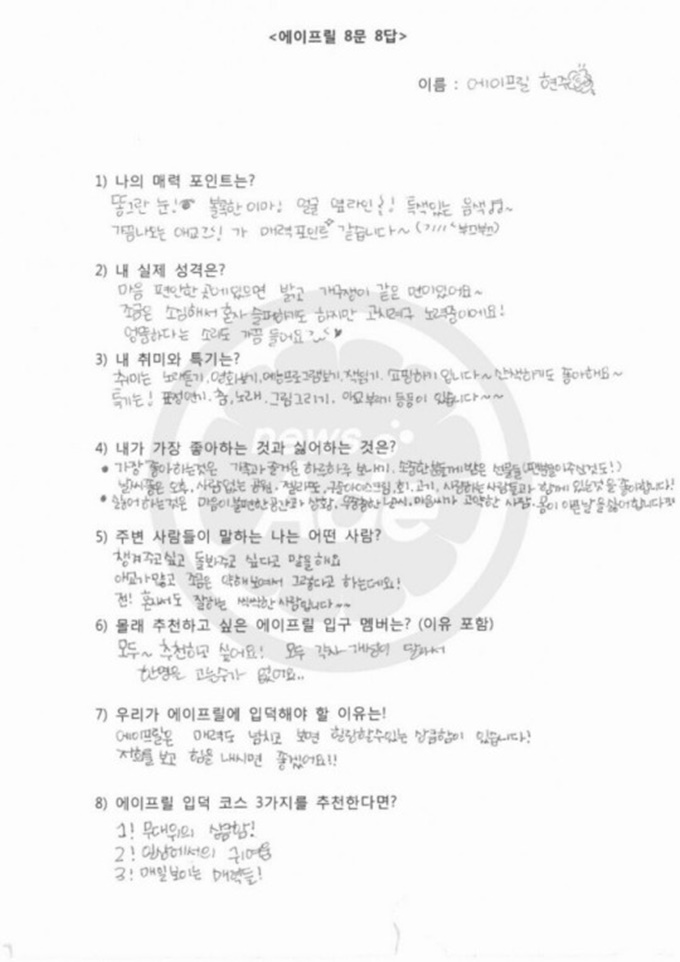 <에이프릴 8문 8답>
이름 : 에이프릴 현주
1) 나의 매력 포인트는?
똥그란 눈! 볼록한 이마! 얼굴 옆라인! 특색있는 음색♫~
가끔나오는 애교까지! 가 매력포인트 같습니다~ (부끄부끄)
2) 내 실제 성격은?
마음 편안한 곳에있으면 밝고 개구쟁이 같은 면이있어요~
조금은 소심해서 혼자 슬퍼하기도 하지만 고치려구 노력중이에요!
엉뚱하다는 소리도 가끔 들어요 ♥
3) 내 취미와 특기는?
취미는 노래듣기, 영화보기, 예능프로그램보기, 책읽기, 쇼핑하기 입니다~ 산책하기도 좋아해요~
특기는! 표정연기, 춤, 노래, 그림그리기, 등등이 있습니다~~
4) 내가 가장 좋아하는 것과 싫어하는 것은?
• 가장 좋아하는것은 가족과 즐거운 하루하루 보내기, 소중한분들께 받은 선물들(팬분들이주신것도!)
날씨좋은 오후, 사람없는 공원, 젤라또, 구슬아이스크림, 회, 고기, 사랑하는사람들과 함께 있는것을 좋아합니다!
• 싫어하는것은 마음이불편한공간과 상황, 우중충한 날씨, 마음씨가 고약한 사람, 몸이 아픈날을 싫어합니다
5) 주변 사람들이 말하는 나는 어떤 사람?
챙겨주고싶고 돌봐주고 싶다고 말을해요
애교가많고 조금은 약해보여서 그렇다고 하는데요!
전! 혼자서도 잘하는 씩씩한사람입니다~~
6) 몰래 추천하고 싶은 에이프릴 입구 멤버는? (이유 포함)
모두~ 추천하고 싶어요! 모두 각자 개성이 달라서
한명은 고를수가 없어요..
7) 우리가 에이프릴에 입덕해야 할 이유는!
에이프릴은 매력도 넘치고 보면 힐링할수있는 상큼함이 있습니다!
저희를 보고 힘을 내시면 좋겠어요!!
8) 에이프릴 입덕 코스 3가지를 추천한다면?
1! 무대위의 상큼함!
2! 일상에서의 귀여움
3! 매일보이는 매력들!
news
ADE